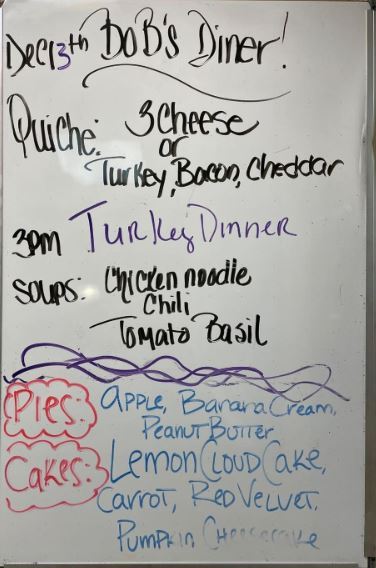 Dec 13th BoB's Diner!
Quiche: 3 Cheese
or
Turkey, Bacon, Cheddar
3pm Turkey Dinner
Soups: Chicken noodle
Chili
Tomato Basil
Pies: Apple, Banana Cream,
Peanut Butter
Cakes: Lemon Cloud Cake,
Carrot, Red Velvet,
Pumpkin, Cheesecake